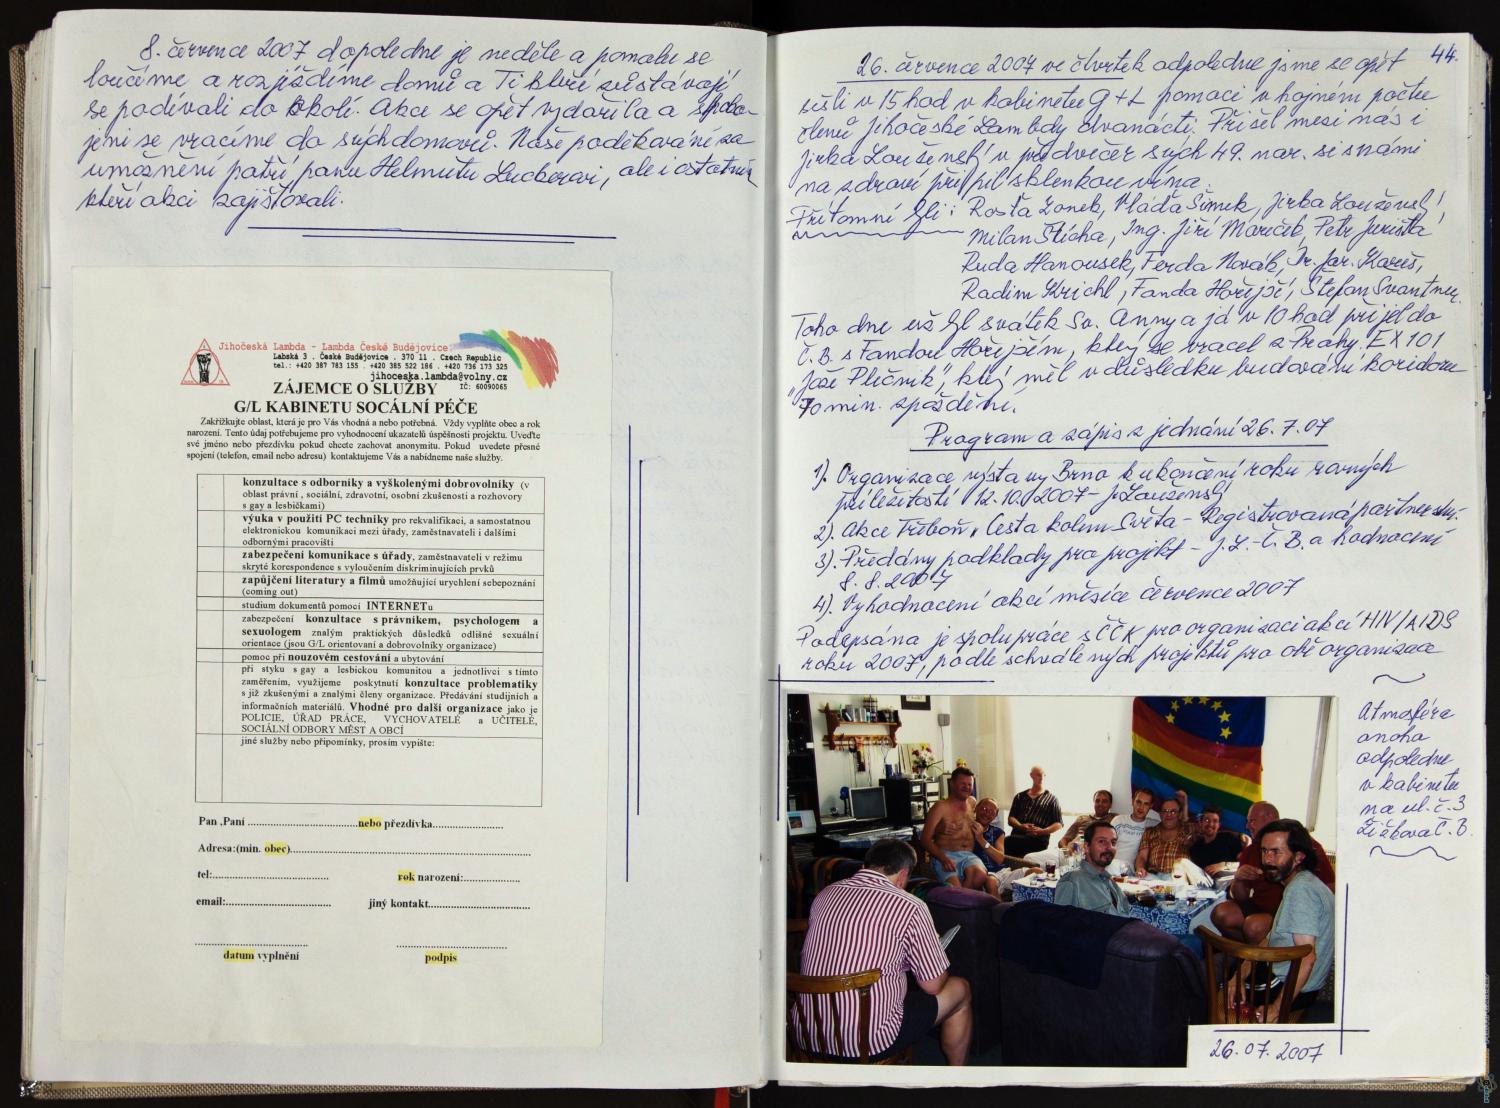 8. července 2007 dopoledne je neděle a pomalu se
loučíme a rozjíždíme domů a Ti kteří zůstávají
se podívali do okolí. Akce se opět vydařila a spoko-
jeni se vracíme do svých domovů. Naše poděkování za
umožnění patří panu Helmutu Luckeravi, ale i ostatním
kteří akci zajišťovali.
Jihočeská Lambda - Lambda České Budějovice
Labská 3 . České Budějovice . 370 11 . Czech Republic
tel.: +420 387 783 155 . +420 385 522 186 . +420 736 173 325
jihoceska.lambda@volny.cz
IČ: 60090065
ZÁJEMCE O SLUŽBY
G/L KABINETU SOCÁLNÍ PÉČE
Zakřížkujte oblast, která je pro Vás vhodná a nebo potřebná. Vždy vyplňte obec a rok
narození. Tento údaj potřebujeme pro vyhodnocení ukazatelů úspěšnosti projektu. Uveďte
své jméno nebo přezdívku pokud chcete zachovat anonymitu. Pokud uvedete přesné
spojení (telefon, email nebo adresu) kontaktujeme Vás a nabídneme naše služby.
konzultace s odborníky a vyškolenými dobrovolníky (v
oblast právní , sociální, zdravotní, osobní zkušenosti a rozhovory
s gay a lesbičkami)
výuka v použití PC techniky pro rekvalifikaci, a samostatnou
elektronickou komunikaci mezi úřady, zaměstnavateli i dalšími
odbornými pracovišti
zabezpečení komunikace s úřady, zaměstnavateli v režimu
skryté korespondence s vyloučením diskriminujících prvků
zapůjčení literatury a filmů umožňující urychlení sebepoznání
(coming out)
studium dokumentů pomocí INTERNETu
zabezpečení konzultace s právníkem, psychologem a
sexuologem znalým praktických důsledků odlišné sexuální
orientace (jsou G/L orientovaní a dobrovolníky organizace)
pomoc při nouzovém cestování a ubytování
při styku s gay a lesbickou komunitou a jednotlivci s tímto
zaměřením, využijeme poskytnutí konzultace problematiky
s již zkušenými a znalými členy organizace. Předávání studijních a
informačních materiálů. Vhodné pro další organizace jako je
POLICIE, ÚŘAD PRÁCE, VYCHOVATELÉ a UČITELÉ,
SOCIÁLNÍ ODBORY MĚST A OBCÍ
jiné služby nebo připomínky, prosím vypište:
Pan ,Paní ......................................nebo přezdívka........................
Adresa:(min. obec)....................................................................................
tel:........................................ rok narození:...................
email:.................................... jiný kontakt...................................
datum vyplnění podpis
44.
26. července 2007 ve čtvrtek odpoledne jsme se opět
sešli v 15 hod v kabinetu G+L pomoci v hojném počtu
členů Jihočeské Lambdy dvanácti. Přišel mezi nás i
Jirka Louženský v předvečer svých 49. nar. si s námi
na zdraví připil sklenkou vína.
Přítomni byli: Rosťa Zonek, Vláďa Šimek, Jirka Louženský,
Milan Šticha, Ing. Jiří Mareček, Petr Jurišta
Ruda Hanousek, Ferda Novák, Dr. Jar. Kareš,
Radim Krichl, Fanda Hořejší, Štefan Svantner.
Toho dne už byl svátek Sv. Anny a já v 10 hod přijel do
Č.B. s Fandou Hořejším, který se vracel z Prahy. EX 101
"Jože Plečnik", který měl v důsledku budování koridoru
70 min. zpoždění.
Program a zápis z jednání 26.7.07
1). Organizace výstavy Brno k ukončení roku rovných
příležitostí 12.10.2007 - J. Louženský
2). Akce Třeboň, Cesta kolem Světa - Registrovaná partnerský.
3). Předány podklady pro projekt - J.L.-Č.B. a hodnocení
8.8.2007
4). Vyhodnocení akcí měsíce července 2007
Podepsána je spolupráce s ČČK pro organizaci akcí HIV/AIDS
roku 2007, podle schválených projektů pro obě organizace
Atmosféra
onoho
odpoledne
v kabinetu
na ul. č. 3
Žižkova Č.B.
26.07.2007